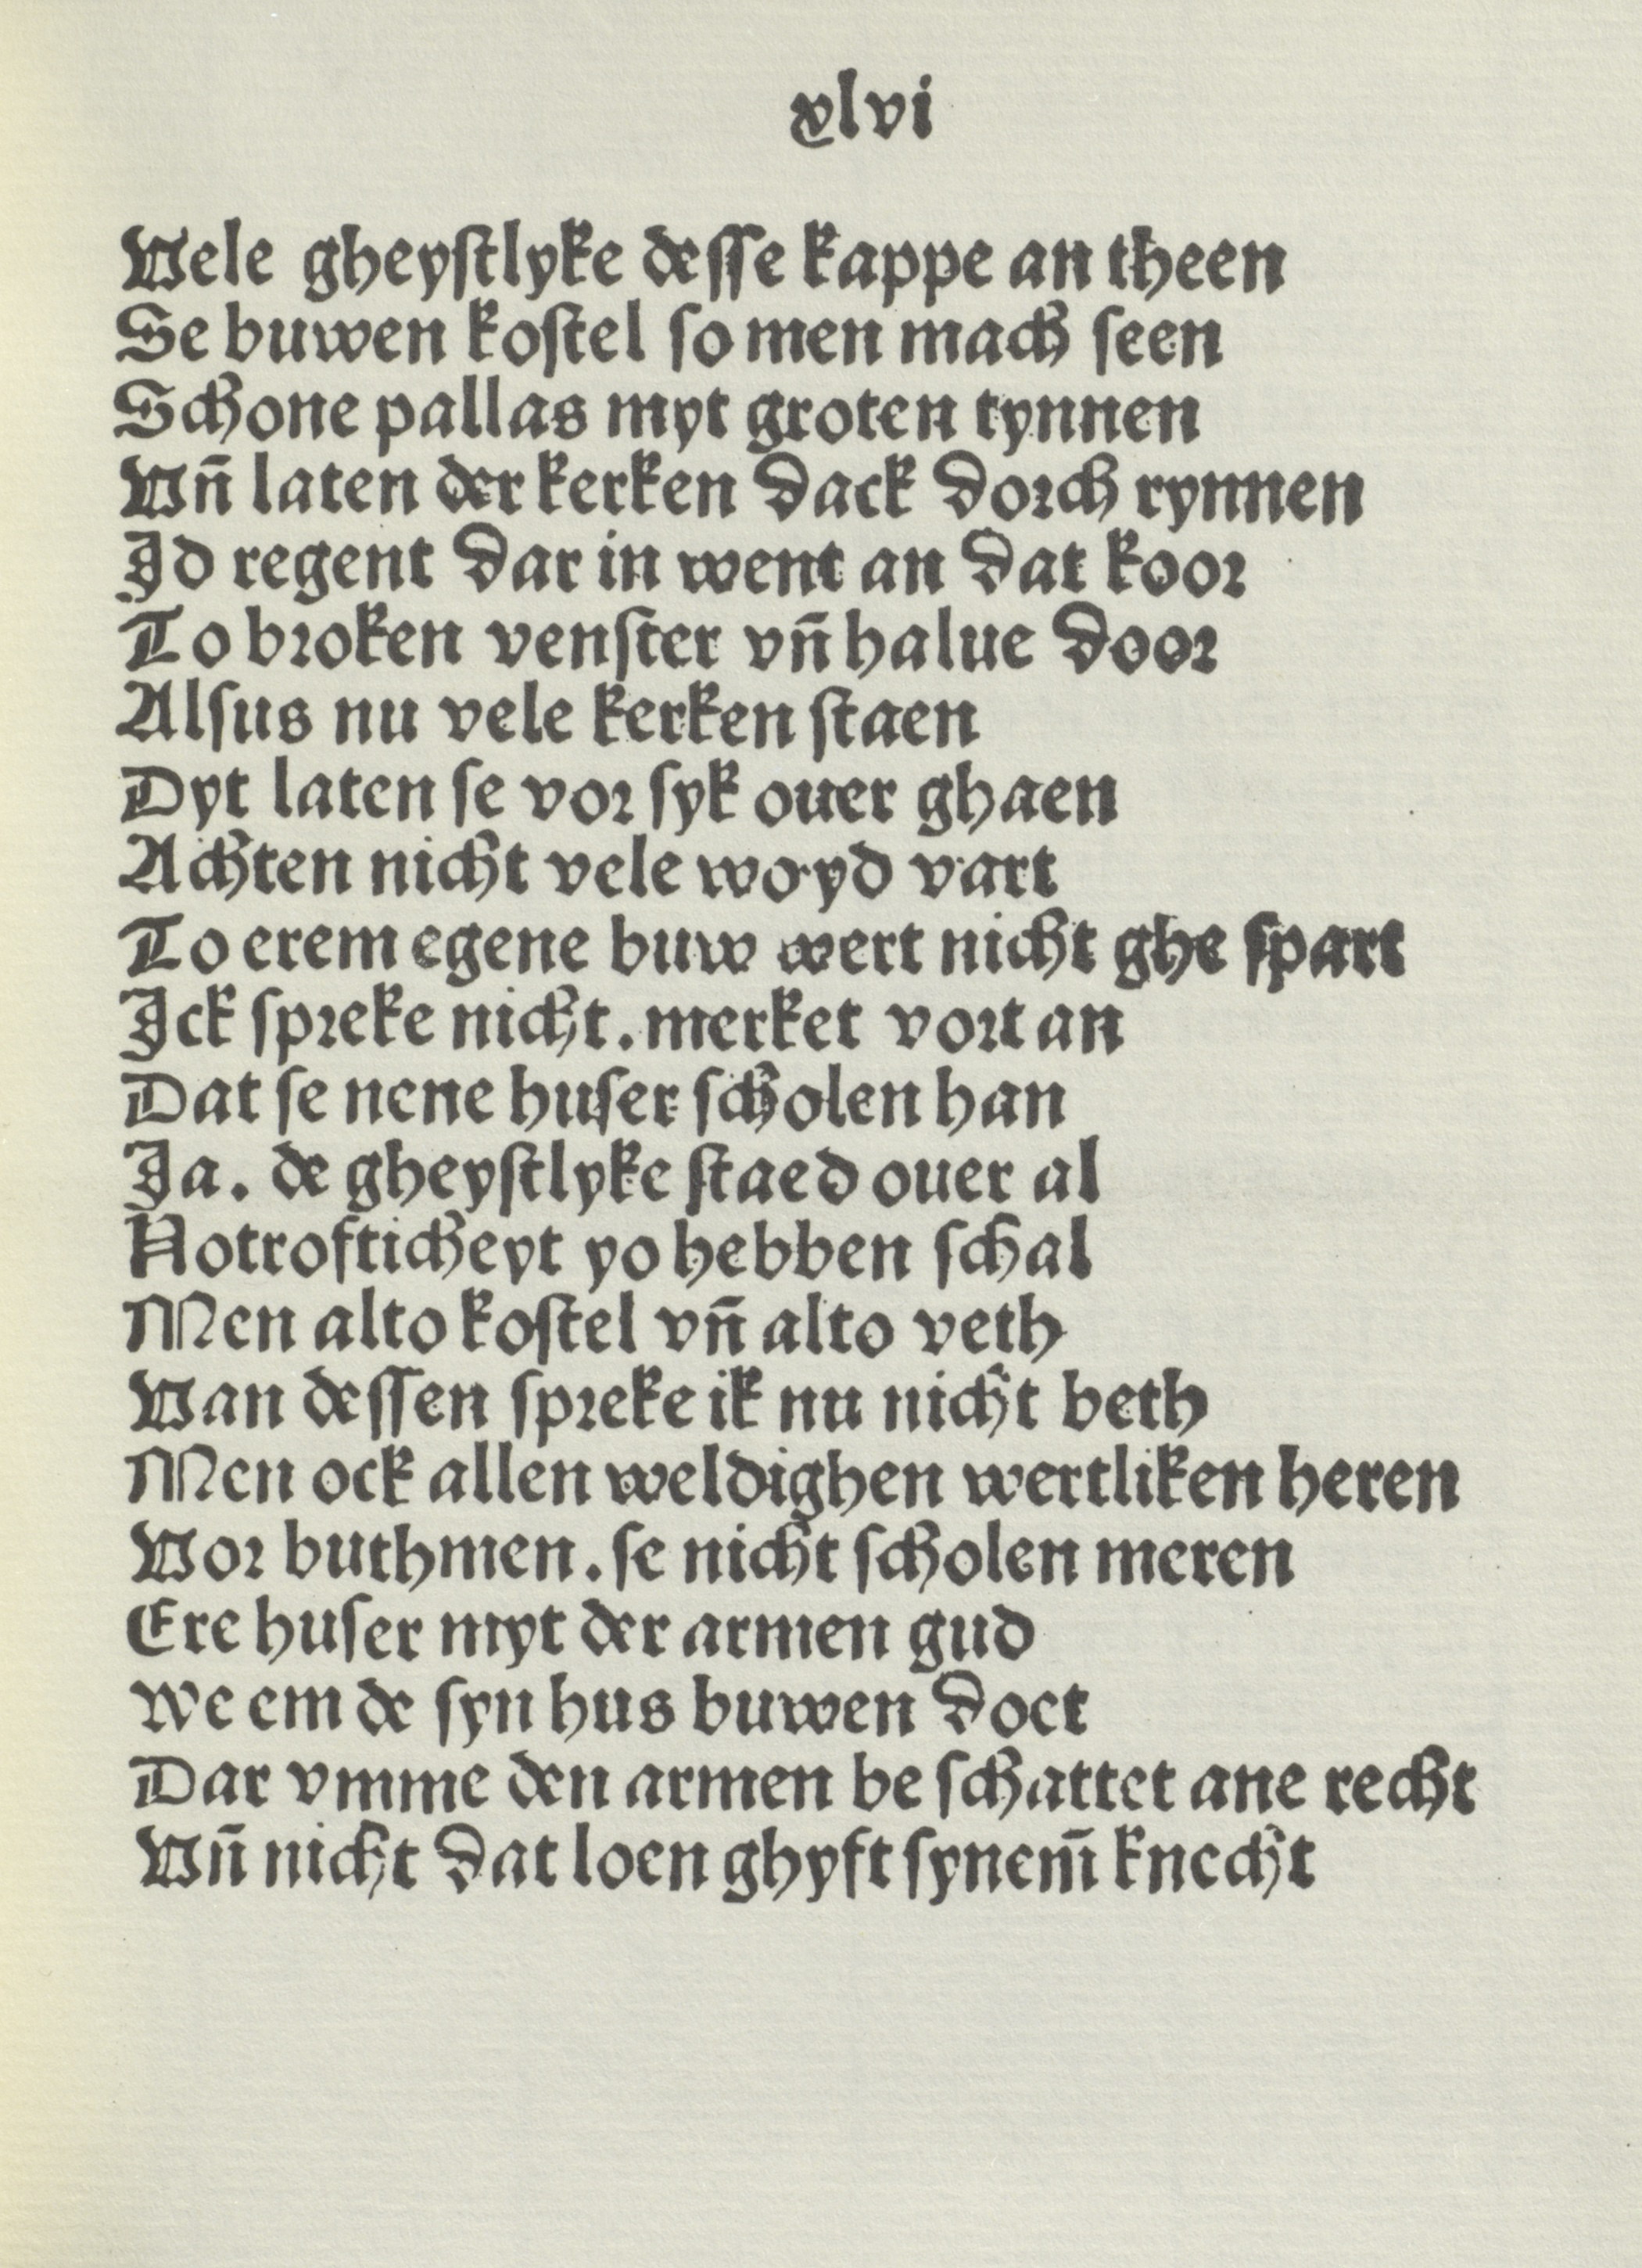 xlvi
Vele gheyſtlyke deſſe kappe an theen
Se buwen koſtel ſo men mach ſeen
Schone pallas myt groten tynnen
Vn̄ laten der kerken dack dorch rynnen
Id regent dar in went an dat koor
To broken venſter vn̄ halue door
Alſus nu vele kerken ſtaen
Dyt laten ſe vor ſyk ouer ghaen
Achten nicht vele wo yd vart
To erem egene buw wert nicht ghe ſpart
Ick ſpreke nicht. merket vort an
Dat ſe nene huſer ſcholen han
Ja. de gheyſtlyke ſtaed ouer al
Notrofticheyt yo hebben ſchal
Men alto koſtel vn̄ alto veth
Van deſſen ſpreke ik nu nicht beth
Men ock allen weldighen wertliken heren
Vor buthmen. ſe nicht ſcholen meren
Ere huſer myt der armen gud
We em de ſyn hus buwen doet
Dar vmme den armen be ſchattet ane recht
Vn̄ nicht dat loen ghyft ſynem̄ knecht